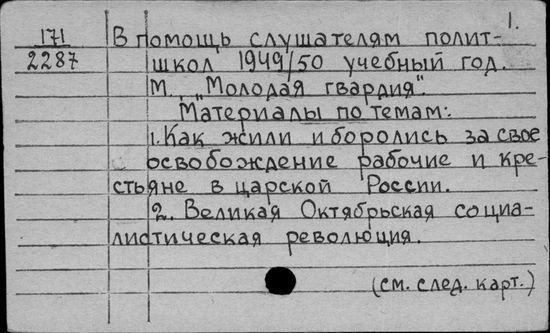 1.
171 В помощь слушателям полит-
2287 школ 1949/50 учебный год.
М., "Молодая гвардия".
Материалы по темам:
1. Как жили и боролись за свое
освобождение рабочие и кре-
стьяне в царской России.
2. Великая Октябрьская социа-
листическая революция.
(см. след. карт.)